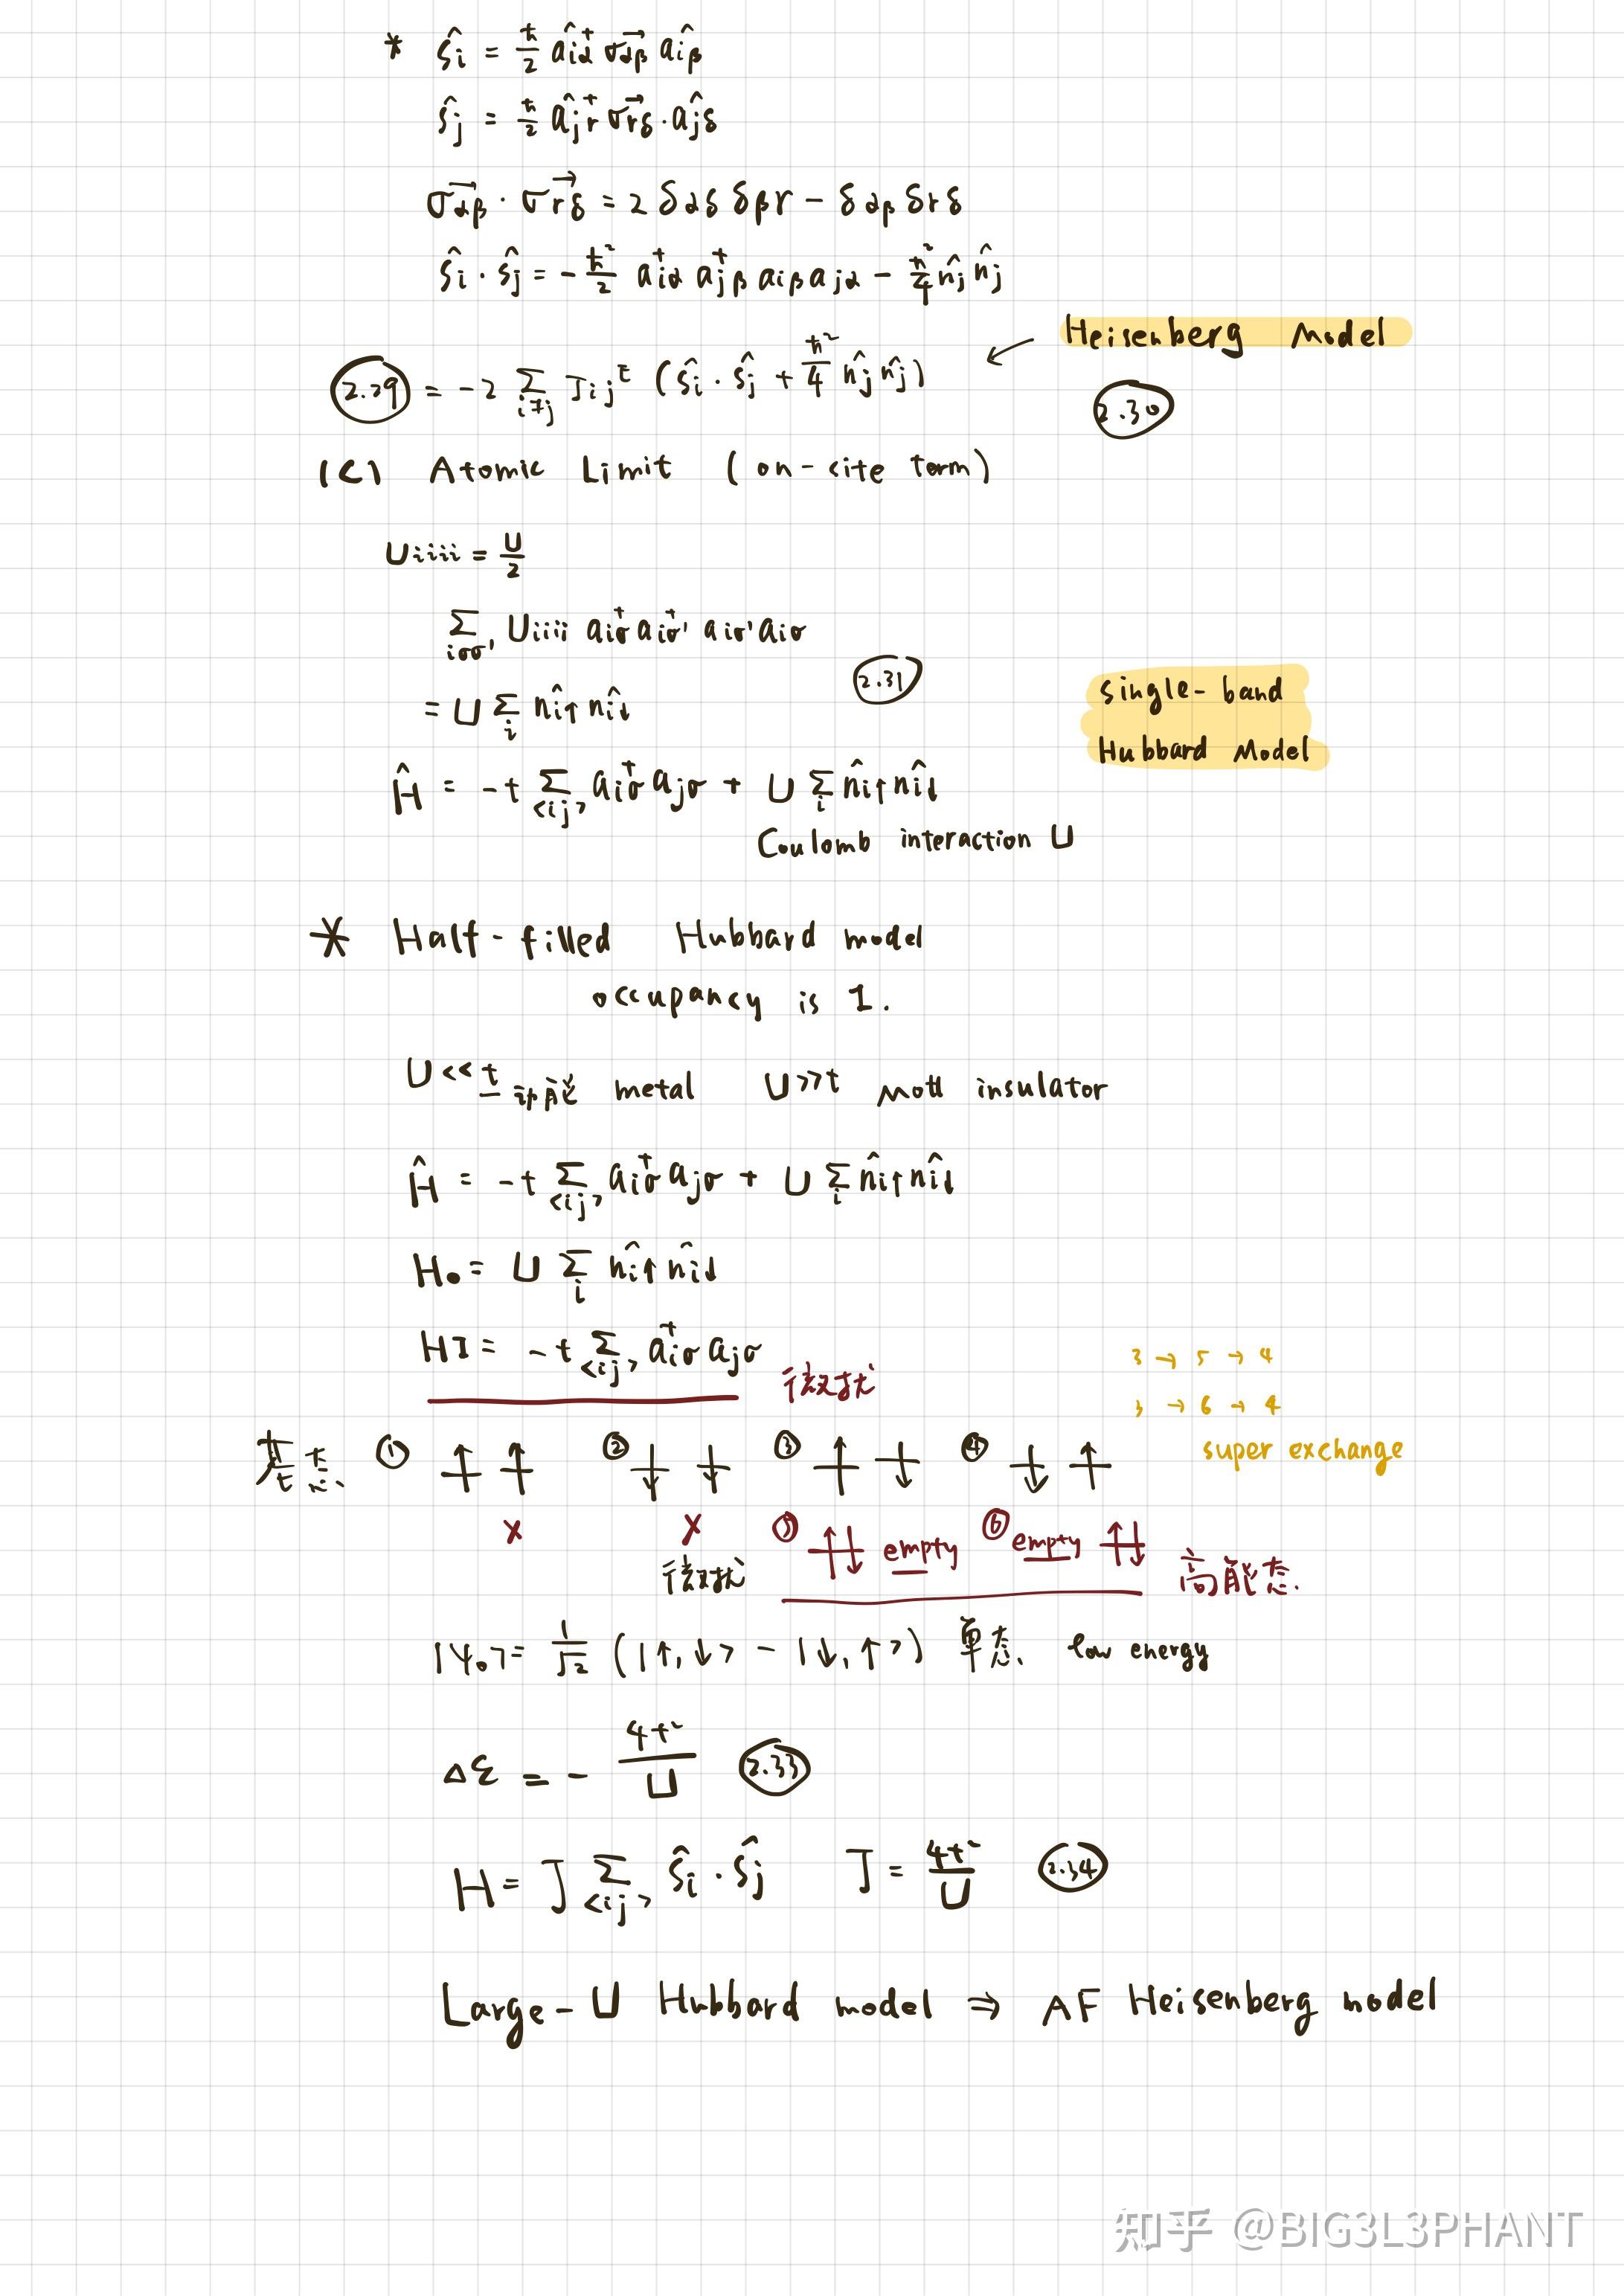 * ŝi = ħ/2 âiα† σ⃗αβ âiβ
ŝj = ħ/2 âjr† σ⃗rδ · âjδ
σ⃗αβ · σ⃗rδ = 2 δαδ δβr − δαβ δrδ
ŝi · ŝj = − ħ²/2 aiα† ajβ† aiβ ajα − ħ²/4 n̂j n̂j
Heisenberg Model
2.29 = −2 Σi≠j Jij (ŝi · ŝj + ħ²/4 n̂j n̂j)
2.30
(C) Atomic Limit (on-cite term)
Uiiii = U/2
Σiσσ' Uiiii aiσ† aiσ'† aiσ' aiσ
2.31
= U Σi n̂i↑ n̂i↓
single-band
Hubbard Model
Ĥ = −t Σ<ij> aiσ† ajσ + U Σi n̂i↑ n̂i↓
Coulomb interaction U
* Half-filled Hubbard model
occupancy is 1.
U << t 动能 metal U>>t Mott insulator
Ĥ = −t Σ<ij> aiσ† ajσ + U Σi n̂i↑ n̂i↓
H0 = U Σi n̂i↑ n̂i↓
HI = −t Σ<ij> aiσ† ajσ 微扰
3 → 5 → 4
3 → 6 → 4
super exchange
基态 ① ↑ ↑ ② ↓ ↓ ③ ↑ ↓ ④ ↓ ↑
x x ⑤ ↑↓ empty ⑥ empty ↑↓ 高能态.
微扰
|ψ0> = 1/√2 (|↑,↓> − |↓,↑>) 单态 low energy
Δε = − 4t²/U 2.33
H = J Σ<ij> ŝi · ŝj J = 4t²/U 2.34
Large-U Hubbard model ⇒ AF Heisenberg model
知乎 @BIG3L3PHANT